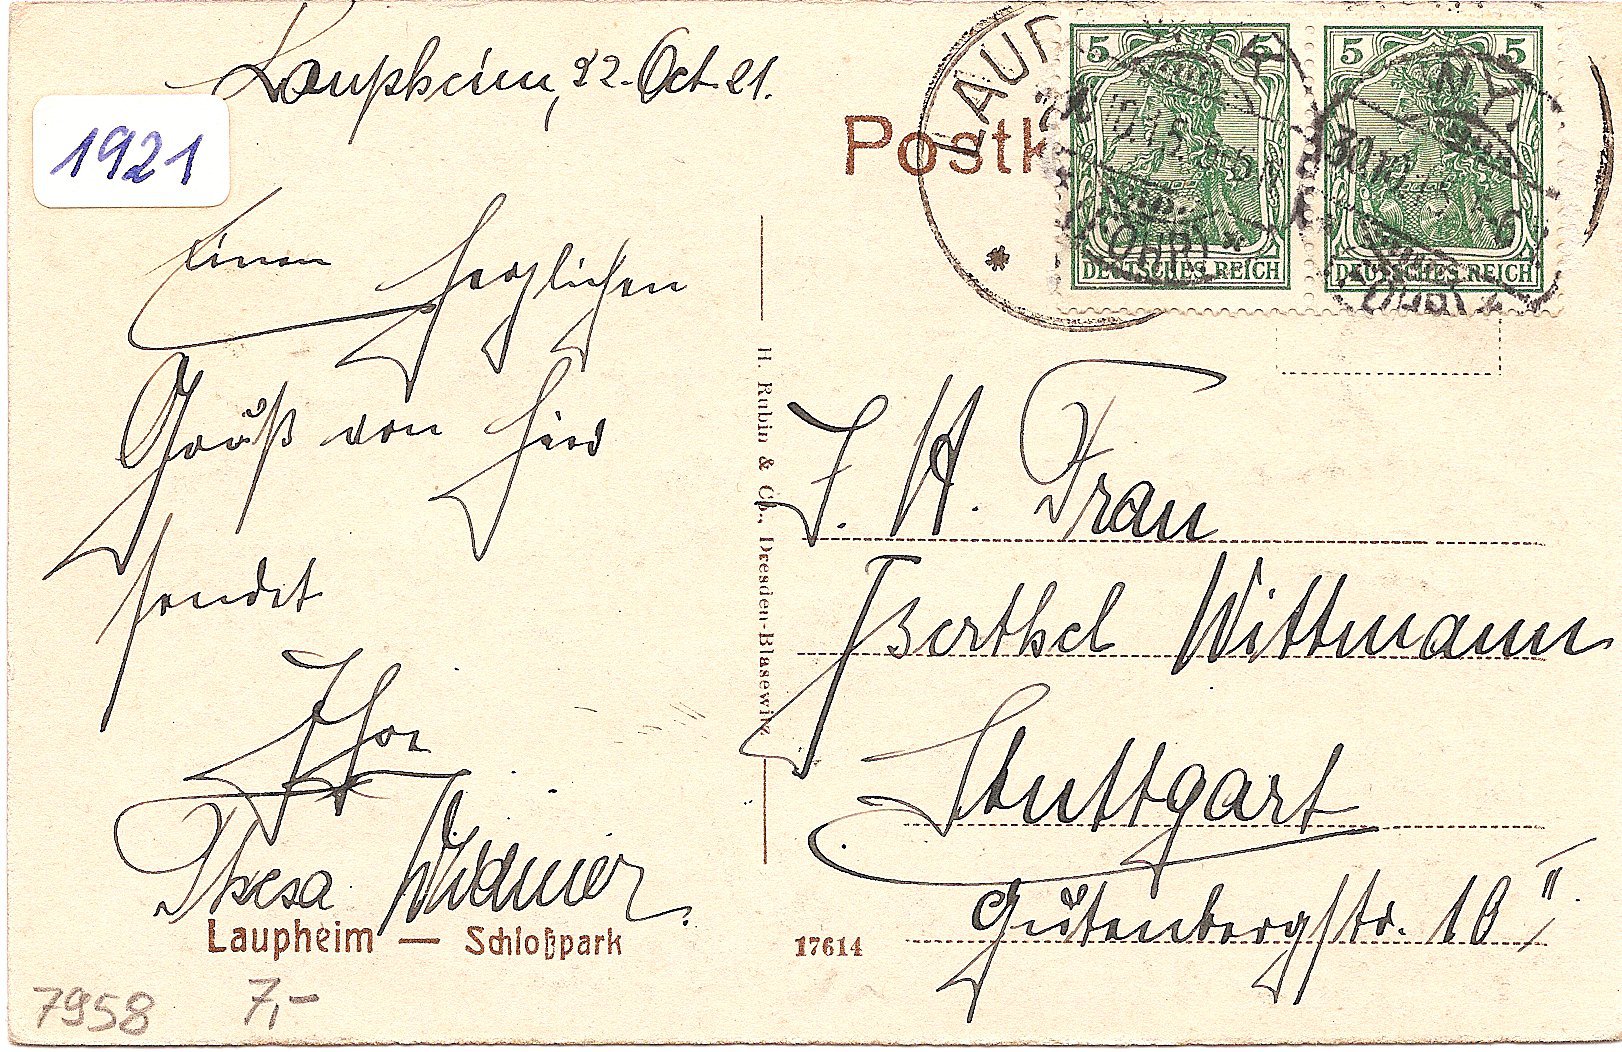 Laupheim, 22. Oct. 21.
1921
Einen herzlichen
Gruß von hier
sendet
Ihre
Thesa Widmer.
Laupheim — Schloßpark
7958 7,-
H. Rubin & Co., Dresden-Blasewitz
17614
Postk
LAUP
5 5
DEUTSCHES REICH
5 5
DEUTSCHES REICH
J. H. Frau
Berthel Wittmann
Stuttgart
Gutenbergstr. 18 II